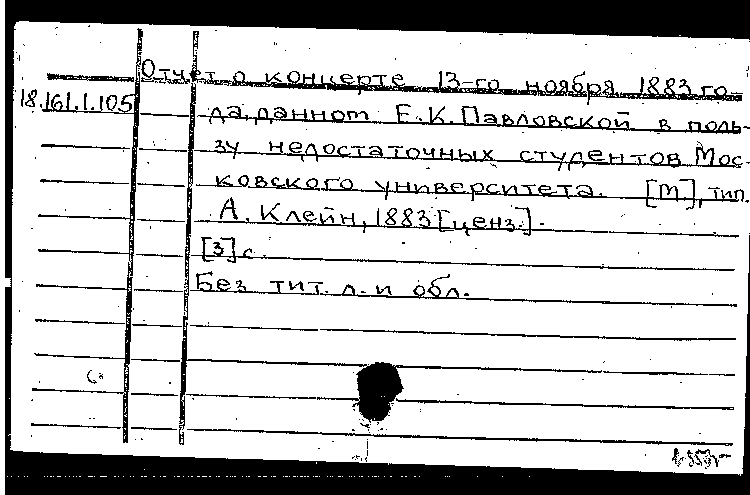 Отчет о концерте 13-го ноября 1883 го-
18.161.1.105 да, данном Е.К.Павловской в поль-
зу недостаточных студентов Мос-
ковского университета. [М], тип.
А. Клейн, 1883 [ценз.].
[3] с.
Без тит. л. и обл.